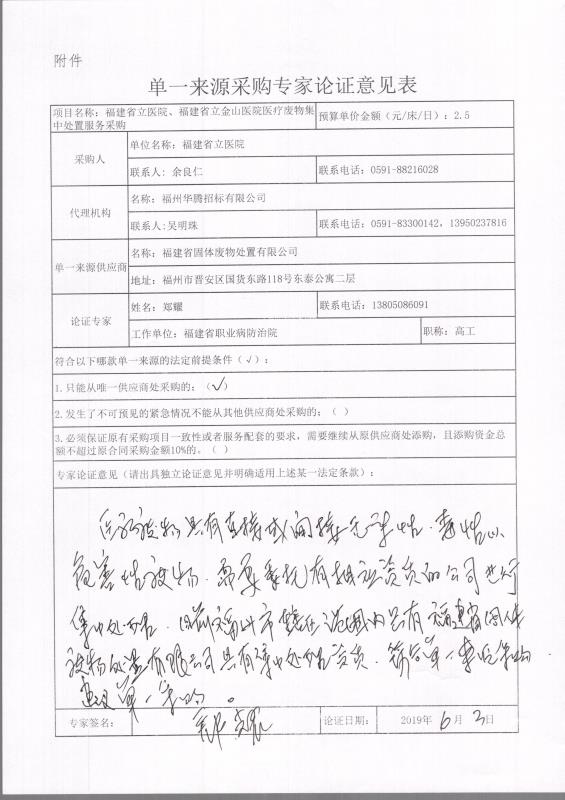 附件
单一来源采购专家论证意见表
项目名称：福建省立医院、福建省立金山医院医疗废物集中处置服务采购
预算单价金额（元/床/日）：2.5
采购人
单位名称：福建省立医院
联系人：余良仁
联系电话：0591-88216028
代理机构
名称：福州华腾招标有限公司
联系人:吴明珠
联系电话：0591-83300142，13950237816
单一来源供应商
名称：福建省固体废物处置有限公司
地址：福州市晋安区国货东路118号东泰公寓二层
论证专家
姓名：郑耀
联系电话：13805086091
工作单位：福建省职业病防治院
职称：高工
符合以下哪款单一来源的法定前提条件（√）：
1.只能从唯一供应商处采购的；（√）
2.发生了不可预见的紧急情况不能从其他供应商处采购的；（ ）
3.必须保证原有采购项目一致性或者服务配套的要求，需要继续从原供应商处添购，且添购资金总
额不超过原合同采购金额10%的。（ ）
专家论证意见（请出具独立论证意见并明确适用上述某一法定条款）：
医疗废物具有直接或间接感染性、毒性以
危害性废物，需要委托有相应资质的公司进行
集中处置。目前福州市辖区范围内只有福建省固体
废物处置有限公司具有集中处置资质，符合单一来源采购
建议单一采购。
专家签名：
郑耀
论证日期：
2019年 6月 3日